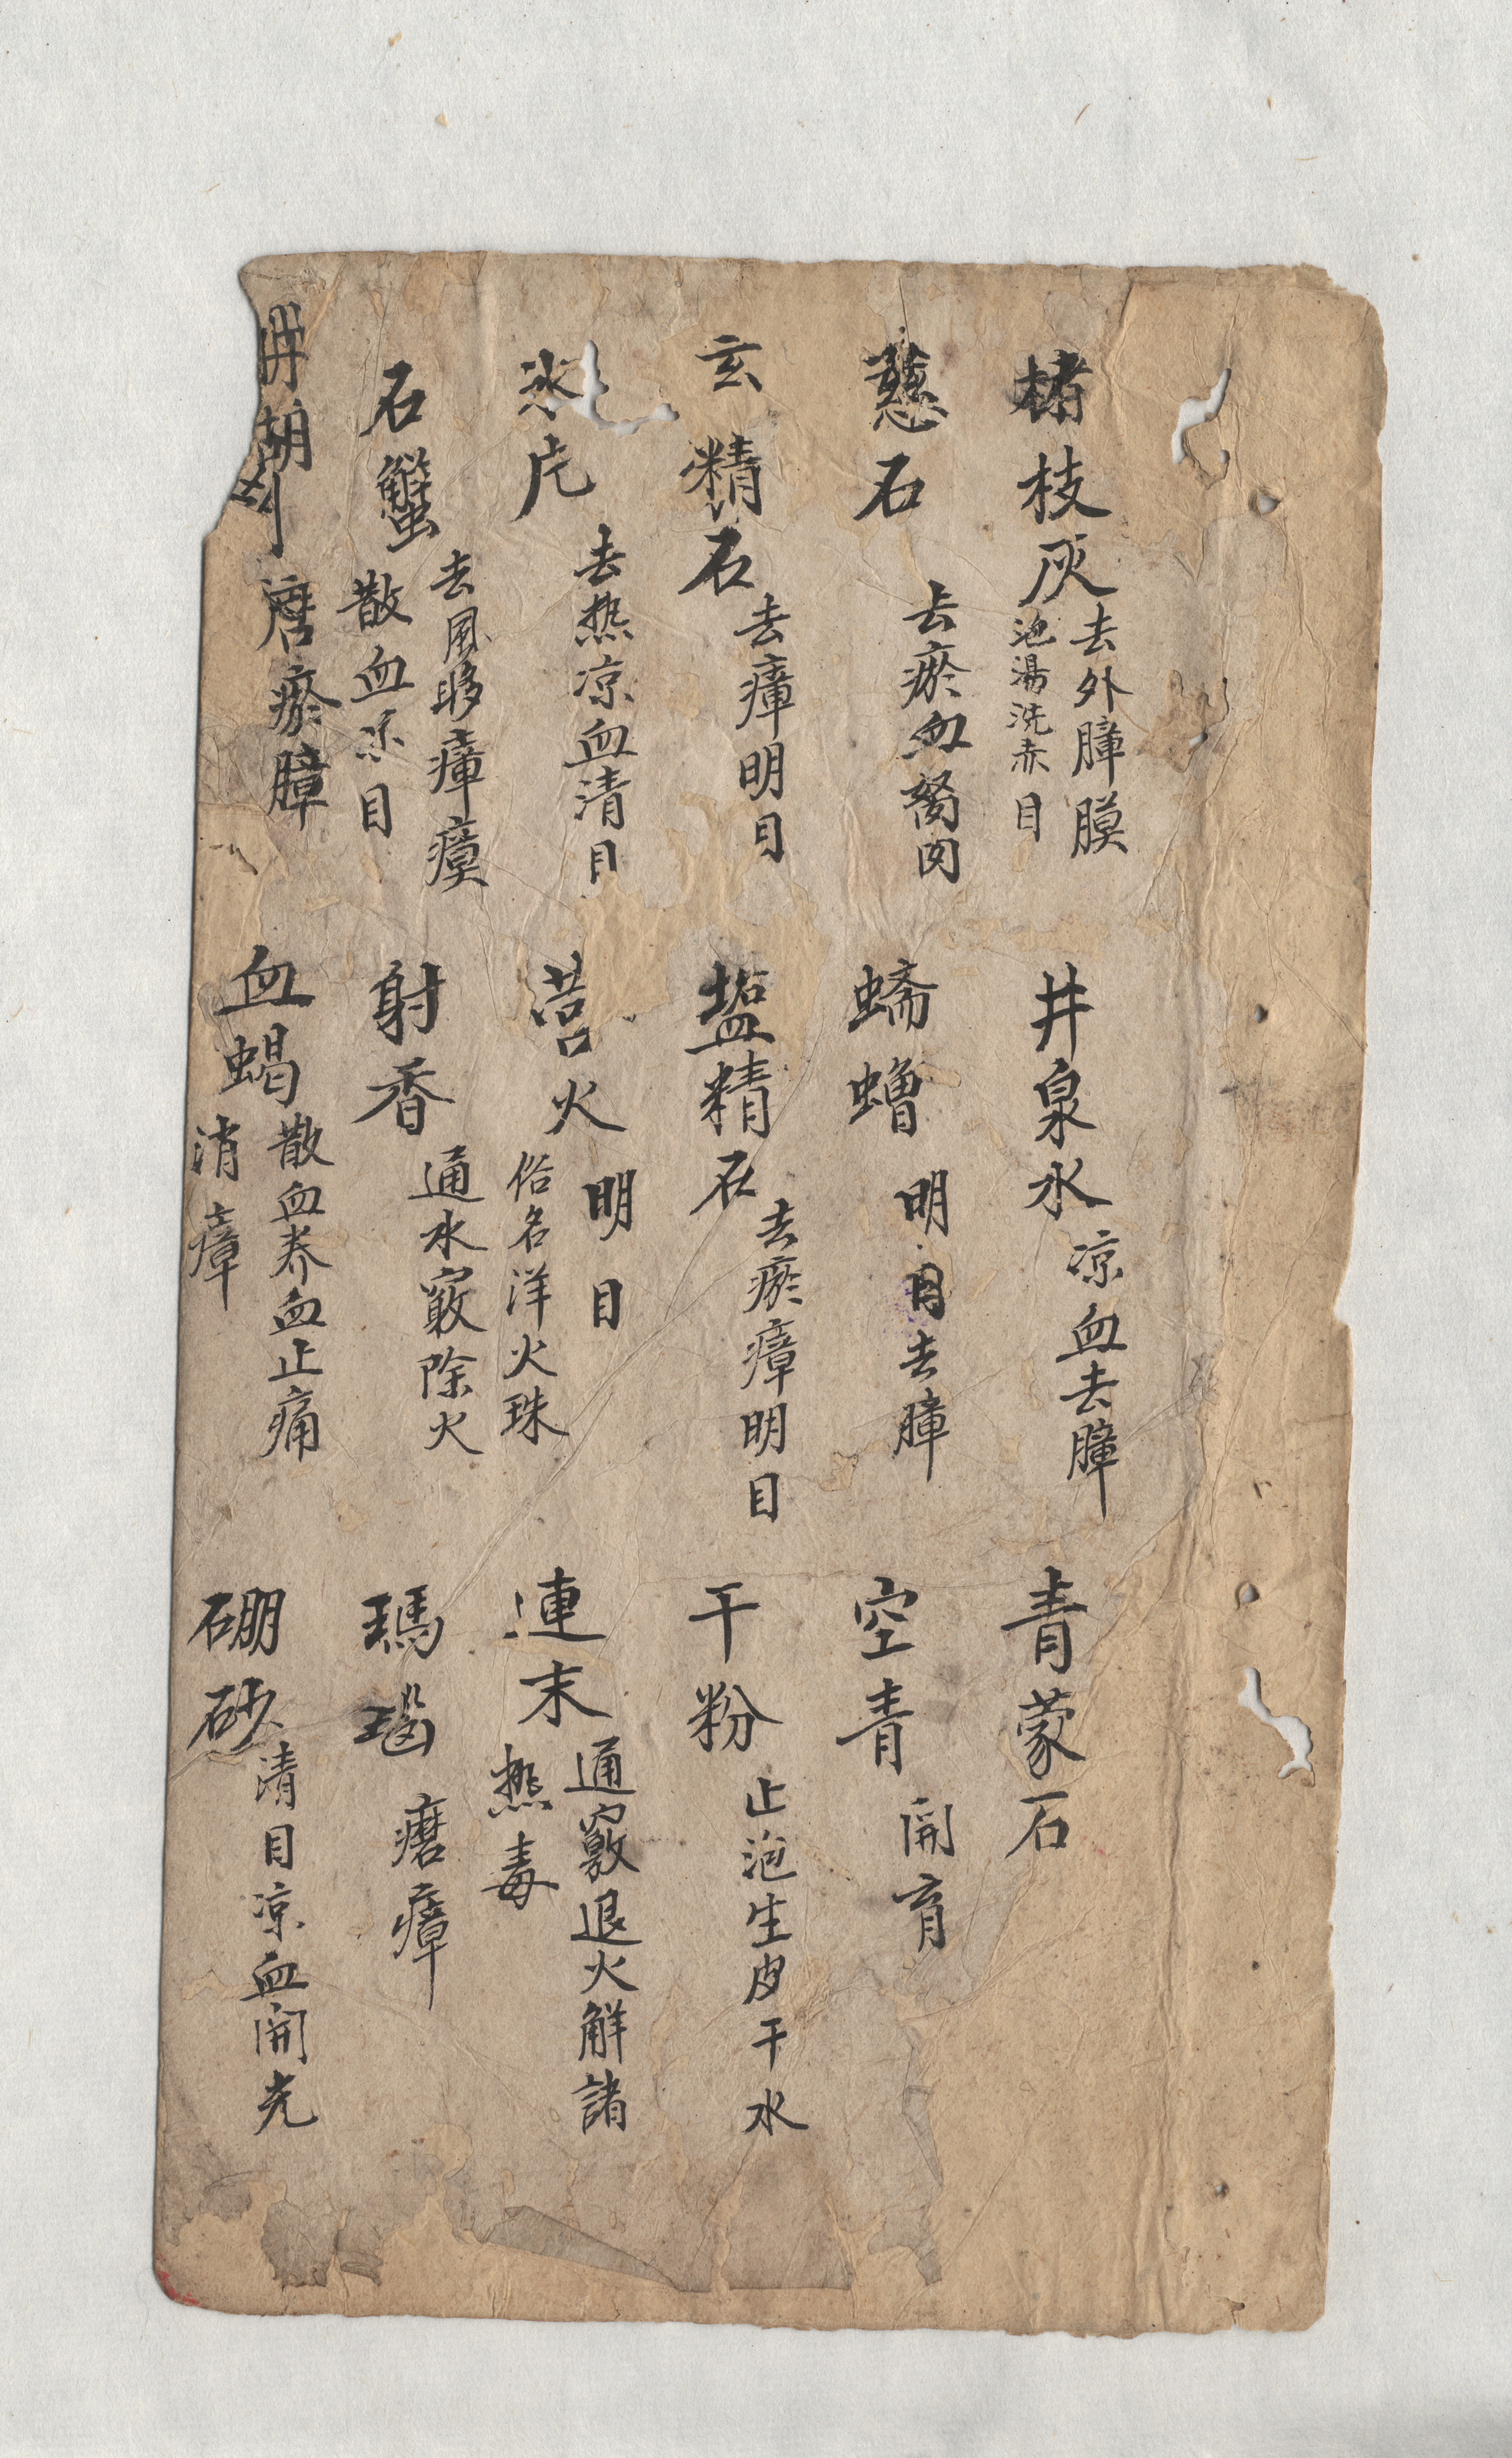 楮枝灰 去外膧膜
泡湯洗赤目
井泉水 凉血去膧
青蒙石
慈石 去瘀血胬肉
蠐螬 明目去膧
空青 開育
玄精石 去瘴明目
塩精石 去瘀瘴明目
干粉 止泡生皮干水
氷片 去热凉血清目
火 明目
俗名洋火珠
連末 通竅退火解諸
热毒
石蟹 去風眵瘴瘼
散血赤目
射香 通水竅除火
瑪瑙 磨瘴
珊瑚 磨瘀膧
血蝎 散血养血止痛
消瘴
硼砂 清目凉血開光